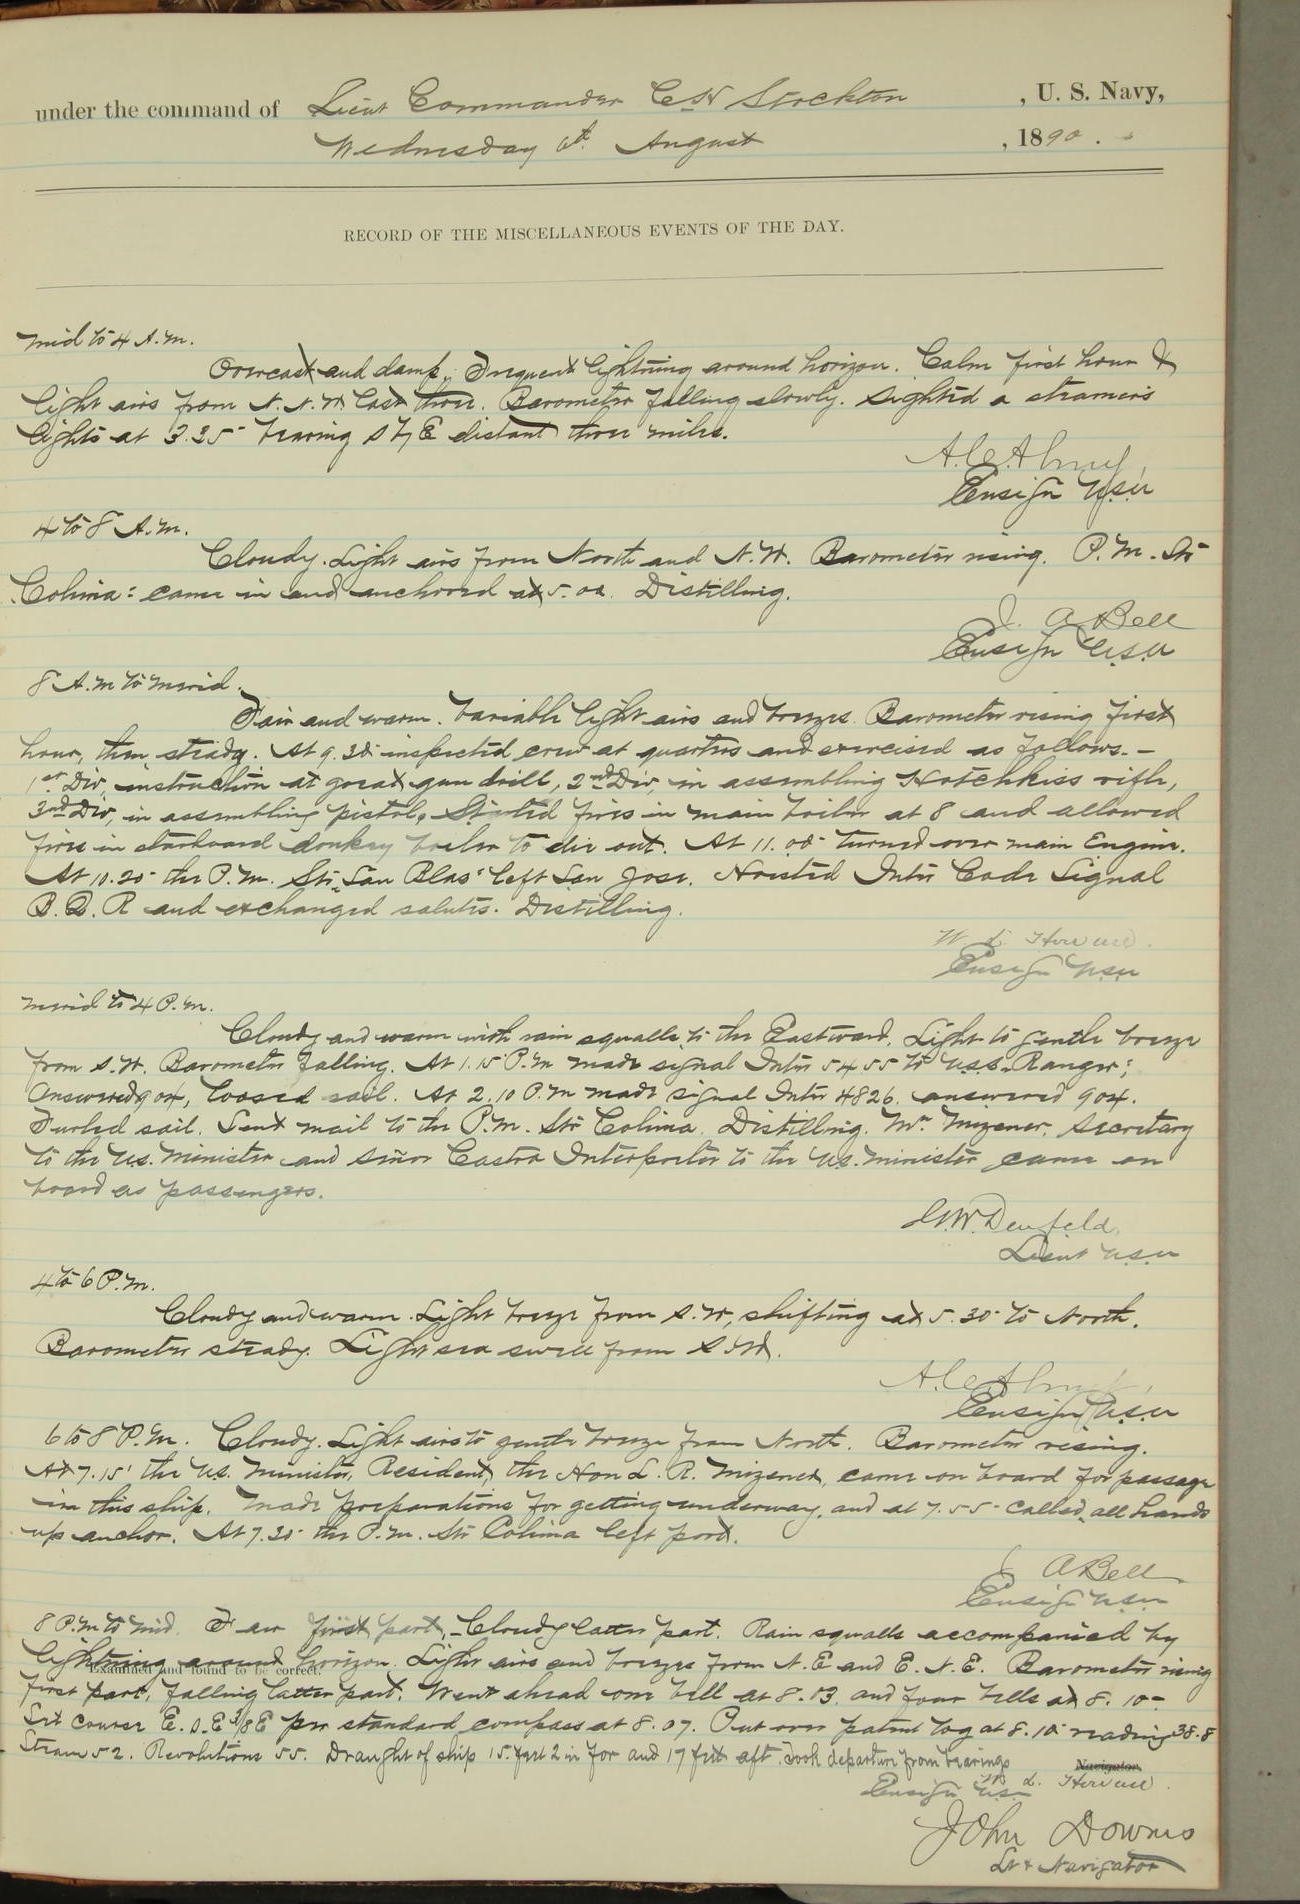 under the command of Lieut Commander C H Stockton , U. S. Navy,
Wednesday 6th August , 1890.
RECORD OF THE MISCELLANEOUS EVENTS OF THE DAY.
Mid to 4 A.M.
Overcast and damp. Frequent lightning around horizon. Calm first hour &
light airs from N.N.W. last three. Barometer falling slowly. Sighted a steamer's
lights at 3.35 bearing S by E distant three miles.
A.C. Almy,
Ensign USN
4 to 8 A.M.
Cloudy. Light airs from North and N.W. Barometer rising. P.M. Str
"Colima" came in and anchored at 5. Distilling.
J. A Bell
Ensign USN
8 A.M to Merid.
Fair and warm. Variable light airs and breezes. Barometer rising first
hour, then steady. At 9.30 inspected crew at quarters and exercised as follows.-
1st Div, instruction at great gun drill, 2nd Div, in assembling Hotchkiss rifle,
3rd Div, in assembling pistol. Started fires in main boiler at 8 and allowed
fires in starboard donkey boiler to die out. At 11.00 turned over main Engine.
At 10.20 the P.M. Str. "San Blas" left San Jose. Hoisted Inter Code Signal
B.D.R and exchanged salutes. Distilling.
W L Howard.
Ensign USN
Merid to 4 P.M.
Cloudy and warm with rain squalls to the Eastward. Light to gentle breeze
from S.W. Barometer falling. At 1.15 P.M made signal Inter 5455 to U.S.S. Ranger;
answered 904, loosed sail. At 2.10 P.M made signal Inter 4826. answered 904.
Furled sail. Sent mail to the P.M. Str Colima. Distilling. Mr. Mizener, Secretary
to the U.S. Minister and Señor Castro Interpreter to the U.S. Minister came on
board as passengers.
G.W. Denfeld.
Lieut USN
4 to 6 P.M.
Cloudy and warm. Light breeze from S.W, shifting at 5.30 to North.
Barometer steady. Light sea swell from S W.
A.C. Almy,
Ensign USN
6 to 8 P.M. Cloudy. Light airs to gentle breeze from North. Barometer rising.
At 7.15 the U.S. Minister, Resident, the Hon L. R. Mizener, came on board for passage
in this ship. Made preparations for getting underway, and at 7.55 called all hands
up anchor. At 7.20 the P.M. Str Colima left port.
J A Bell
Ensign USN
8 P.M to Mid Fair first part,- Cloudy latter part. Rain squalls accompanied by
lightning around horizon. Light airs and breezes from N.E and E.N.E. Barometer rising
Examined and found to be correct.
first part, falling latter part. Went ahead one bell at 8.03 and four bells at 8.10-
Set course E.S.E 3/8 E per standard compass at 8.07. Put over patent log at 8.10 reading 38.8
Steam 52. Revolutions 55. Draught of ship 15. feet 2 in for and 17 feet aft. Took departure from bearings
Navigator.
W L Howard.
Ensign USN
John Downes
Lt & Navigator